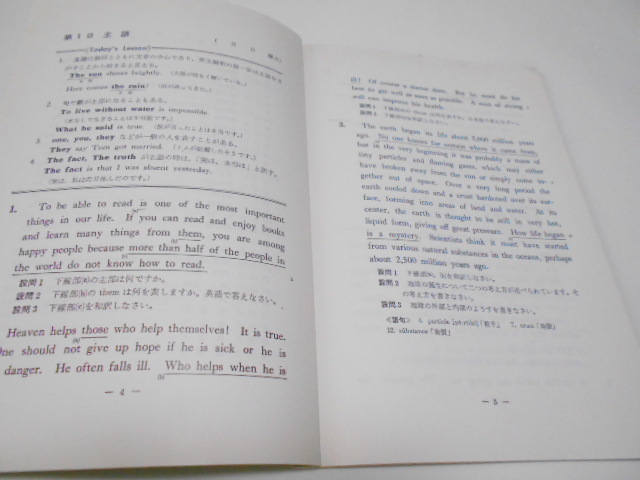 第1日 主語
(Today's Lesson)
The sun shines brightly.
Here comes the rain!
2 句や節が主部になることもある。
To live without water is impossible
What he said is true.
3 one, you, they などが一般の人を表すことがある。
They say Tom got married.
4 The fact, The truth が主語の時は、
The fact is that I was absent yesterday.
1. To be able to read is one of the most important
things in our life. If you can read and enjoy books
and learn many things from them, you are among
happy people because more than half of the people in
the world do not know how to read.
設問1 下線部(a)の主部は何ですか。
設問2 下線部(b)の them は何を表しますか。英語で答えなさい。
設問3 下線部(c)を和訳しなさい。
Heaven helps those who help themselves! It is true.
One should not give up hope if he is sick or he is
danger. He often falls ill. Who helps when he is
— 4 —
ill? Of course a doctor does. But he must do his
best to get well as soon as possible. A man of strong
will can improve his health.
3. The earth began its life about 5,000 million years
ago. No one knows for certain where it came from,
but in the very beginning it was probably a mass of
tiny particles and flaming gases, which may either
have broken away from the sun or simply come to-
gether out of space. Over a very long period the
earth cooled down and a crust hardened over its sur-
face, forming into areas of land and water. At its
center, the earth is thought to be still in very hot,
liquid form, giving off great pressure. How life began
is a mystery. Scientists think it must have started
from various natural substances in the oceans, perhaps
about 2,500 million years ago.
設問1 下線部(a), (b)を和訳しなさい。
設問2 地球の誕生について二つの考え方が述べられています。そ
の考え方を書きなさい。
設問3 地球の外部と内部のようすを書きなさい。
<語句> 4. particle 「粒子」 7. crust「地殻」
12. substance「物質」
— 5 —